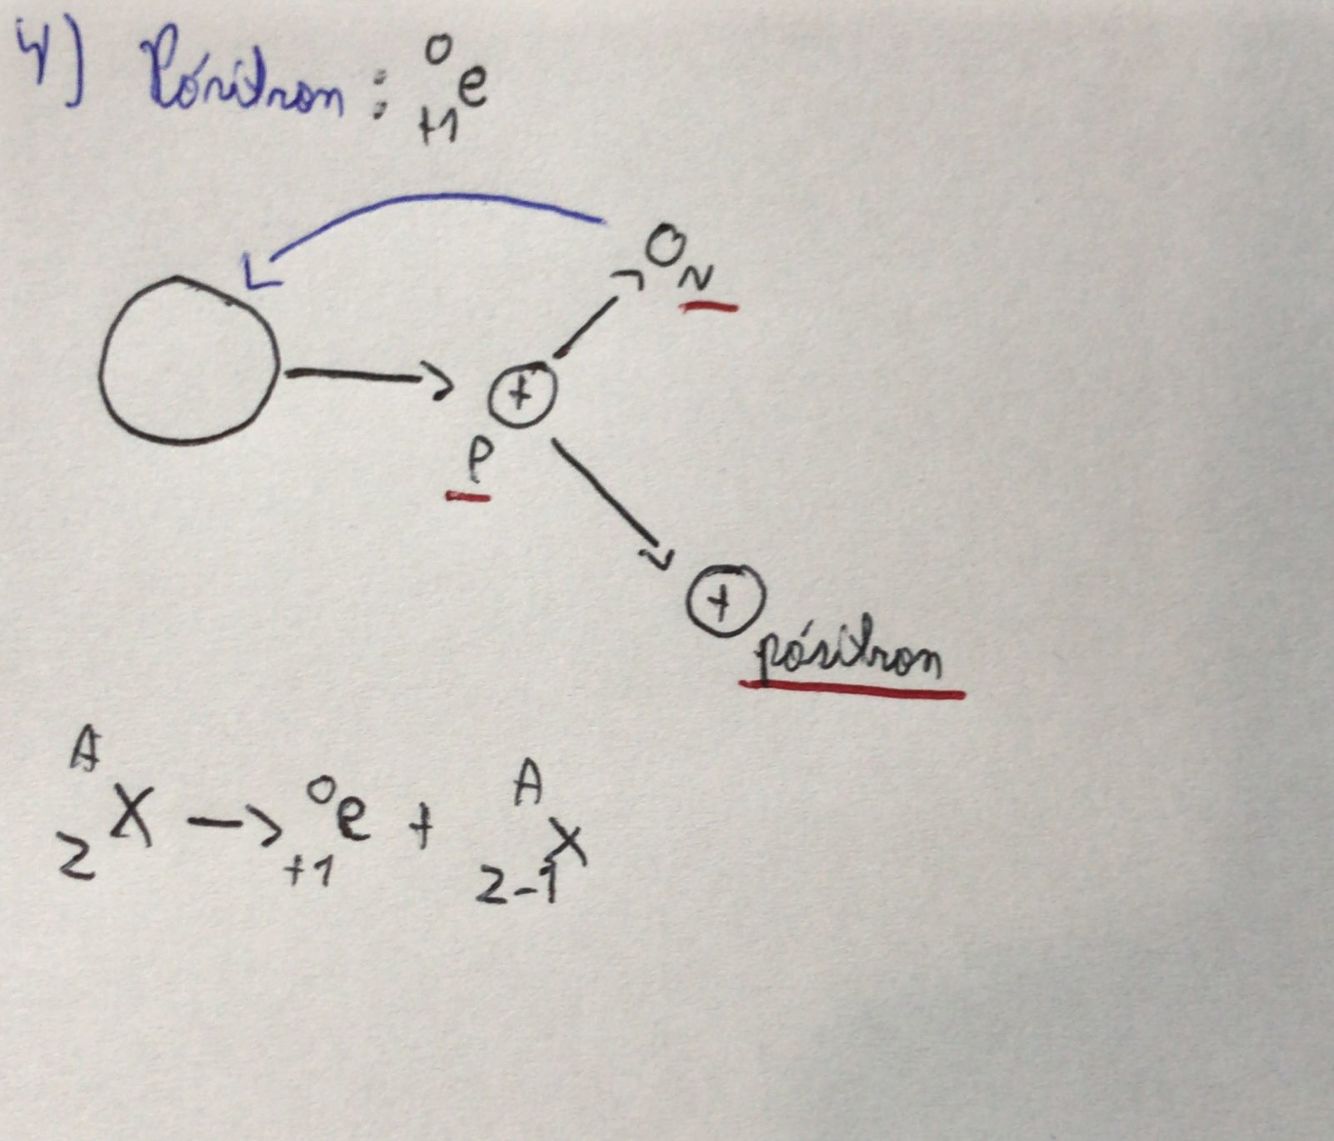 4) Pósitron : ⁰₊₁e
N
+
P
+
pósitron
ᴬ₂X → ⁰₊₁e + ᴬ₂₋₁X